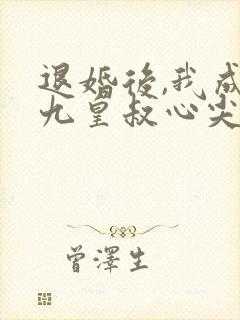 退婚後,我成
九皇叔心尖
曾澤生